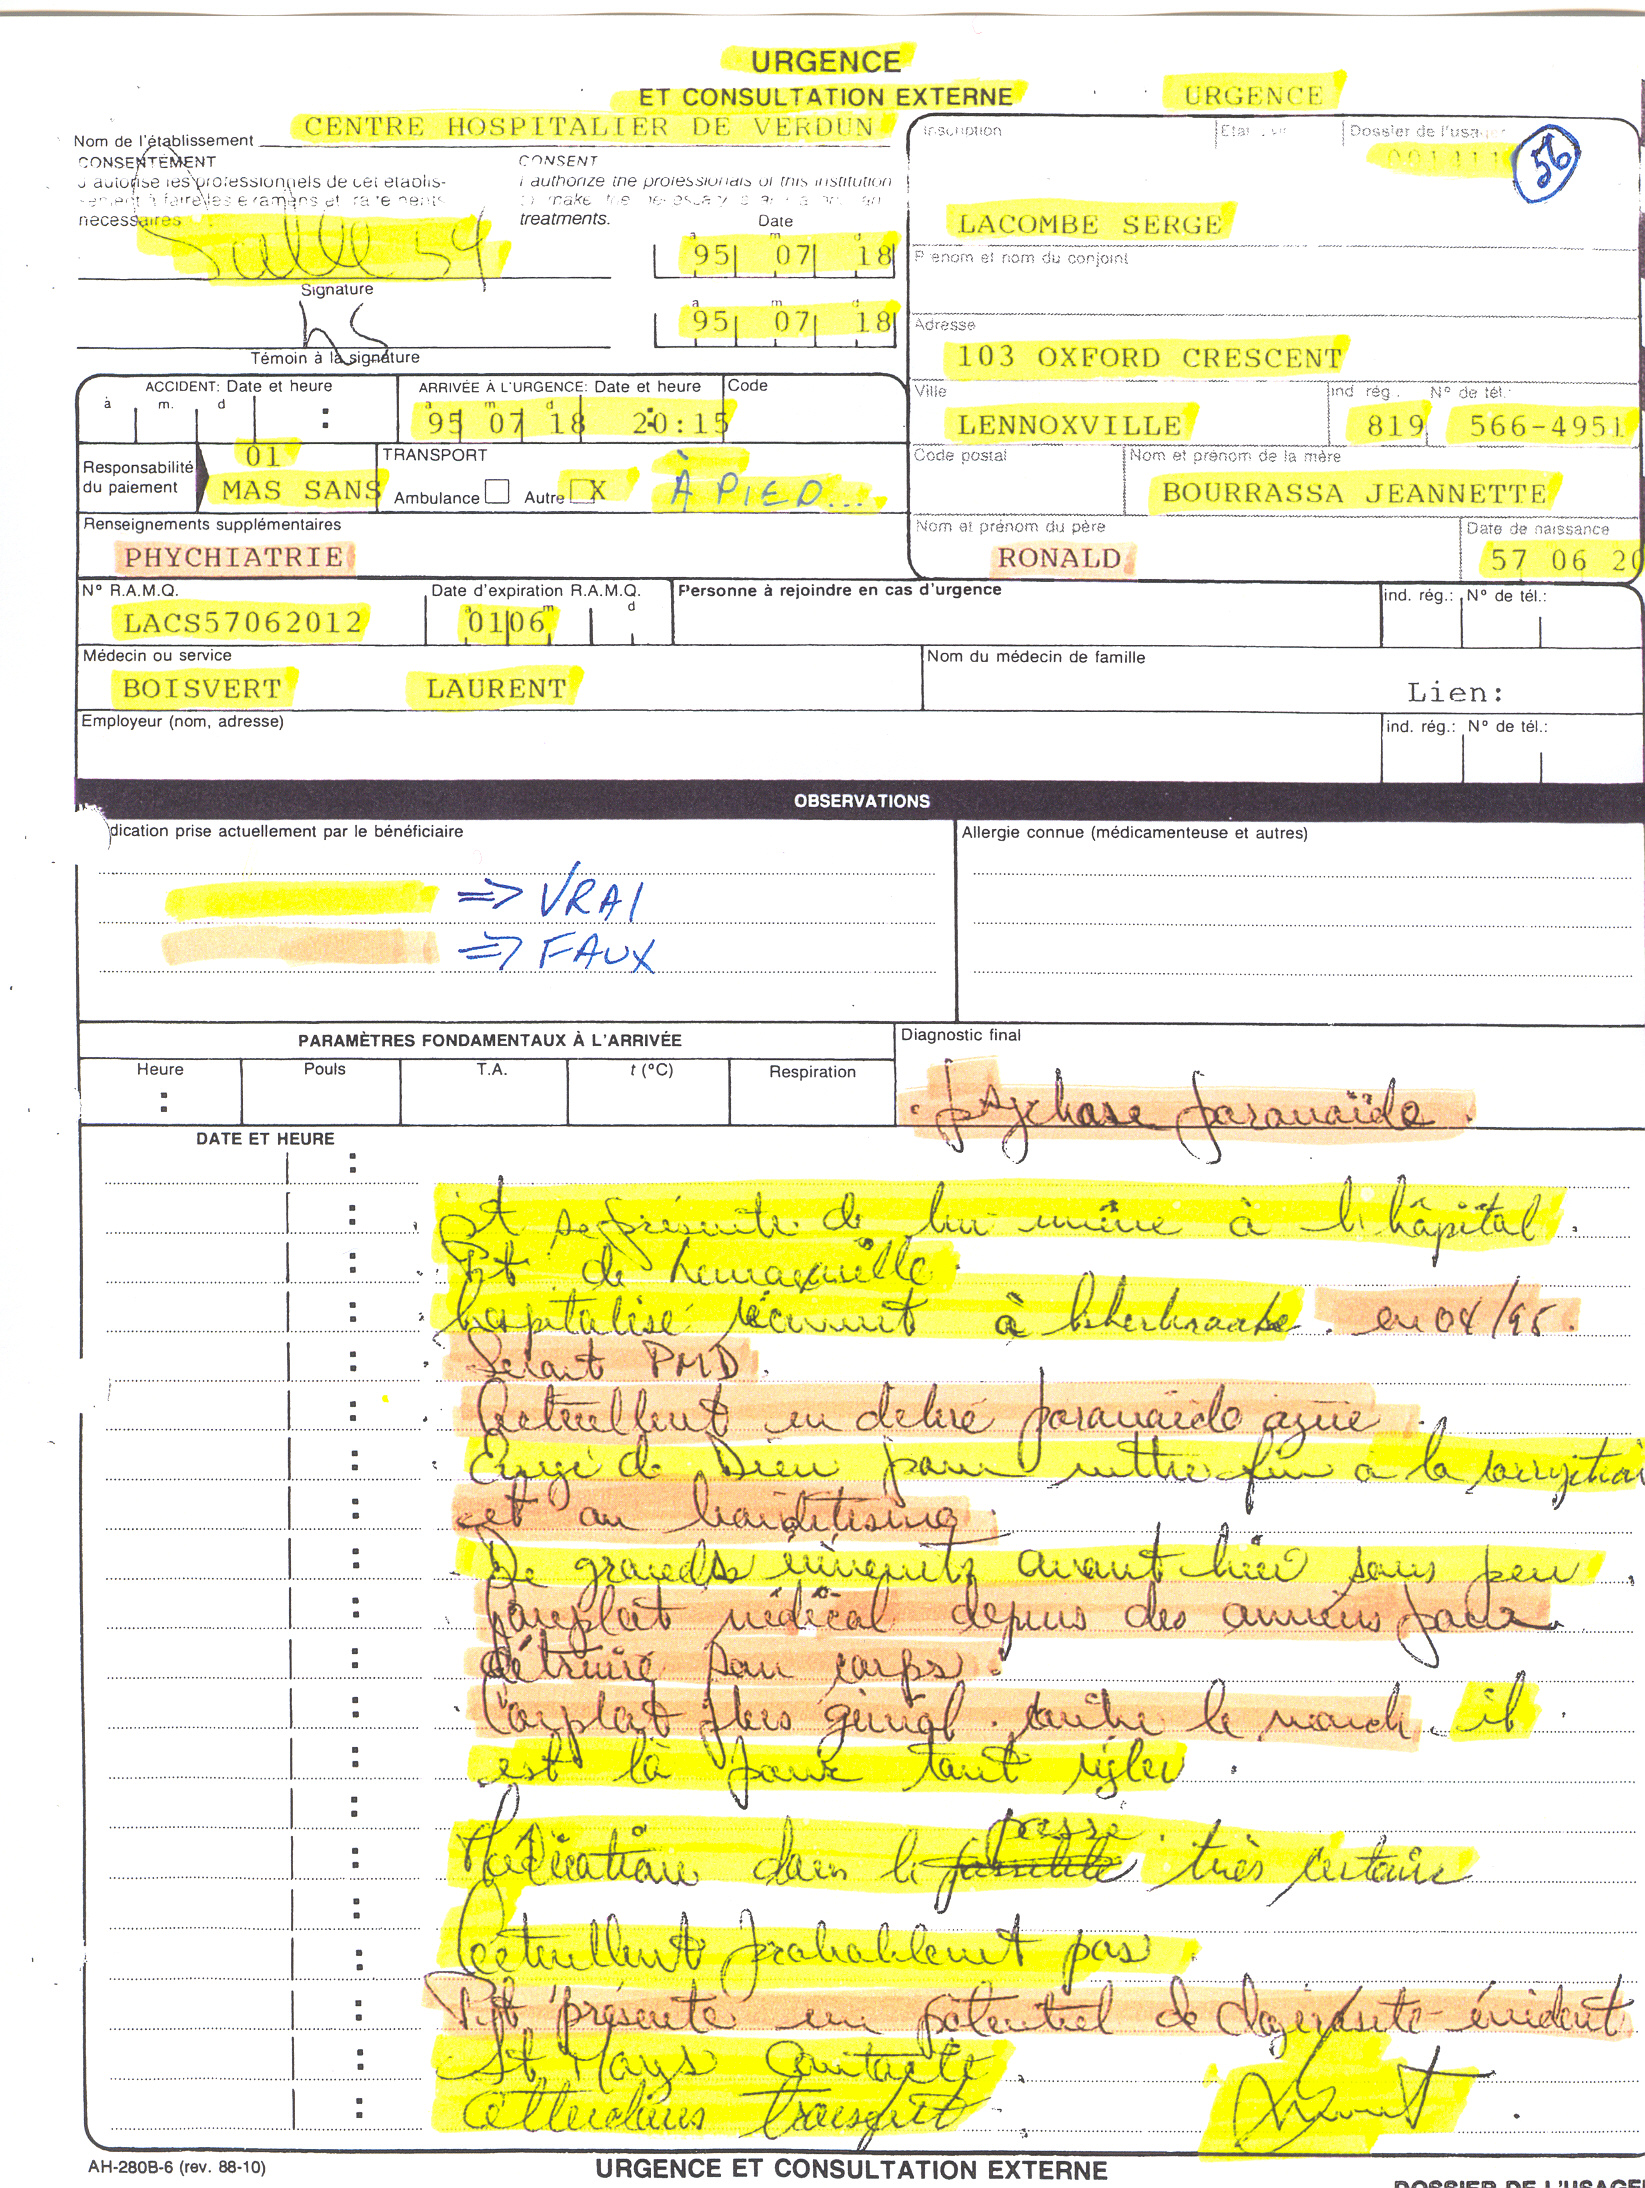 URGENCE
ET CONSULTATION EXTERNE
URGENCE
Nom de l'établissement CENTRE HOSPITALIER DE VERDUN
CONSENTEMENT
J'autorise les professionnels de cet établis-
sement à faire les examens et traitements
nécessaires
CONSENT
I authorize the professionals of this institution
to make the necessary
treatments.
Salle 54
Signature
Témoin à la signature
Date
a m d
95 07 18
a m d
95 07 18
Inscription
Dossier de l'usager
56
LACOMBE SERGE
Prénom et nom du conjoint
Adresse
103 OXFORD CRESCENT
Ville
LENNOXVILLE
ind. rég.
819
N° de tél.:
566-4951
Code postal
Nom et prénom de la mère
BOURRASSA JEANNETTE
Nom et prénom du père
RONALD
Date de naissance
57 06 20
ACCIDENT: Date et heure
a m. d
:
ARRIVÉE À L'URGENCE: Date et heure
a m d
95 07 18 20:15
Code
Responsabilité
du paiement
01
MAS SANS
TRANSPORT
Ambulance Autre X
À PIED...
Renseignements supplémentaires
PHYCHIATRIE
N° R.A.M.Q.
LACS57062012
Date d'expiration R.A.M.Q.
a m d
01 06
Personne à rejoindre en cas d'urgence
ind. rég.: N° de tél.:
Médecin ou service
BOISVERT LAURENT
Nom du médecin de famille
Lien:
Employeur (nom, adresse)
ind. rég.: N° de tél.:
OBSERVATIONS
dication prise actuellement par le bénéficiaire
⇒ VRAI
⇒ FAUX
Allergie connue (médicamenteuse et autres)
PARAMÈTRES FONDAMENTAUX À L'ARRIVÉE
Heure Pouls T.A. t (°C) Respiration
Diagnostic final
psychose paranoïde
DATE ET HEURE
pt se présente de lui même à l'hôpital.
Pt de Lennoxville.
hospitalisé récemment à Sherbrooke. en 04/95.
Serait PMD.
Actuellement en délire paranoïde aigue.
Envoyé de Dieu pour mettre fin à la corruption
et au banditisme.
De grands évènements avant hier sous peu.
complot médical depuis des années pour
détruire son corps.
Complot plus général contre le monde. il
est là pour tout régler.
passé
Médication dans le très certaine
Actuellement probablement pas.
Pt présente un potentiel de dangerosité évident
contacté
Attendons transfert.
AH-280B-6 (rev. 88-10)
URGENCE ET CONSULTATION EXTERNE
DOSSIER DE L'USAGER